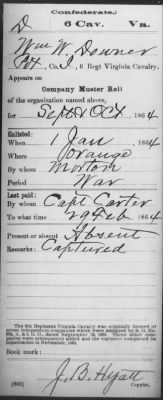 Confederate.
D 6 Cav. Va.
Wm W. Downer
Pvt, Co. I, 6 Regt Virginia Cavalry.
Appears on
Company Muster Roll
of the organization named above,
for Sept & Oct, 1864
Enlisted:
When 1 Jan, 1864
Where Orange
By whom Morton
Period War
Last paid:
By whom Capt Carter
To what time 29 Feb, 1864
Present or absent Absent
Remarks: Captured
Book mark:
J. B. Hyatt
(642) Copyist.